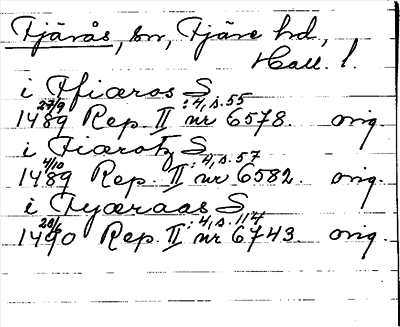 Fjärås, sn, Fjäre hd,
Hall. l.
i Ffiæros S
27/9 :4, s. 55
1489 Rep. II nr 6578. orig.
i Fiærotz S
4/10 :4, s. 57
1489 Rep. II nr 6582. orig.
i Fyæraas S
:4, s. 114
1490 Rep. II nr 6743. orig.